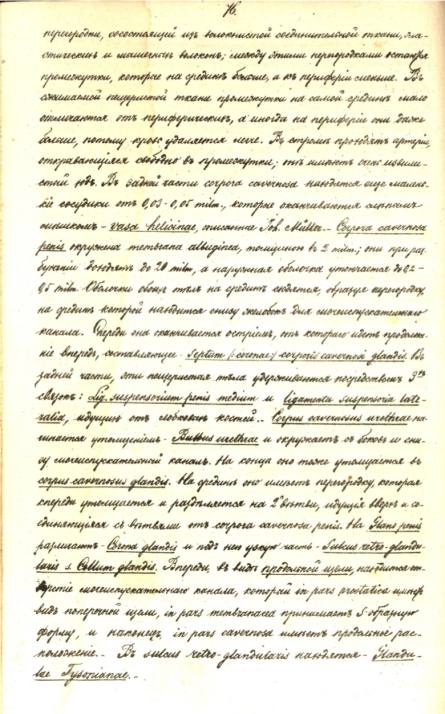 76.
перегородки, состоящій изъ волокнистой соединительной ткани, эла-
стическихъ и мышечныхъ волоконъ; между этими перегородками остаются
промежутки, которые на срединѣ больше, а къ периферіи меньше. Въ
сжимаемой пещеристой ткани промежутки на самой срединѣ мало
отличаются отъ периферическихъ, а иногда на периферіи они даже
больше, потому кровь удаляется легче. Въ стромѣ проходятъ артеріи,
открывающіяся свободно въ промежутки; онѣ имѣютъ очень извили-
стый ходъ. Въ задней части corpora cavernosa находятся еще малень-
кіе сосудики отъ 0,03-0,05 milm., которые оканчиваются слѣпымъ
мѣшкомъ - vasa helicinae, описанные Joh. Müller. - Corpora cavernosa
penis окружена membrana albuginea, толщиною въ 2 milm.; они при раз-
буханіи доходятъ до 20 milm, а наружная оболочка утончается до 0,2-
0,5 milm. Оболочки обоихъ тѣлъ на срединѣ сходятся, образуя перегородку,
на средин которой находится снизу желобокъ для мочеиспускательнаго
канала. Впереди она оканчивается остріемъ, отъ котораго идетъ продолже-
ніе впередъ, составляющее - Septum (coronae) corporis cavernosi glandis. Въ
задней части, эти пещеристыя тѣла удерживаются посредствомъ 3хъ
связокъ: Lig. suspensorium penis medium и ligamenta suspensoria late-
ralia, идущихъ отъ лобковыхъ костей. - Corpus cavernosus urethrae на-
чинается утолщеніемъ - Bulbus urethrae и окружаетъ съ боковъ и сни-
зу мочеиспускательный каналъ. На концѣ оно тоже утолщается въ
corpus cavernosus glandis. На срединѣ оно имѣетъ перегородку, которая
кпереди утолщается и раздѣляется на 2 вѣтви, идущія вверхъ и со-
единяющіяся съ вѣтвями отъ corpora cavernosa penis. На Glans penis
различаютъ - Corona glandis и подъ нею узкую часть - Sulcus retro-glandu-
laris s. Collum glandis. Впереди, въ видѣ продольной щели, находится от-
верстіе мочеиспускательнаго канала, который in pars prostatica имѣетъ
видъ поперечной щели, in pars membranacea принимаетъ S-образную
форму, и наконецъ, in pars cavernosa имѣетъ продольное рас-
положеніе. - Въ sulcus retro-glandularis находятся - Glandu-
lae Tysonianae. -